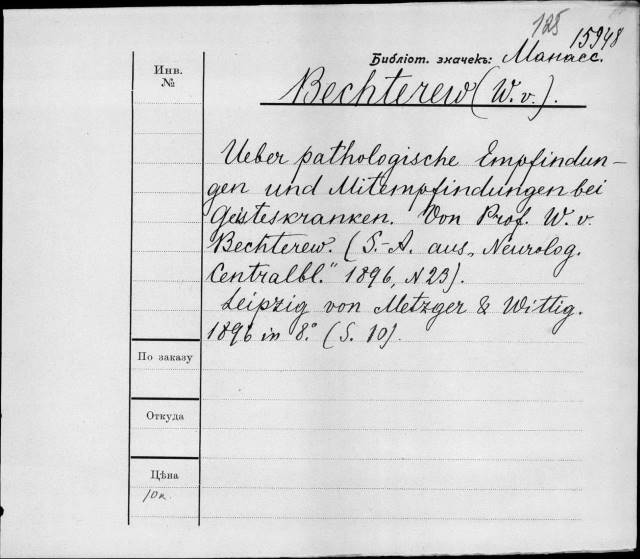 125
15948
Библіот. значекъ: Манасс.
Инв.
№
Bechterew (W. v.).
Ueber pathologische Empfindun-
gen und Mitempfindungen bei
Geisteskranken. Von Prof. W. v.
Bechterew. (S.-A. aus „Neurolog.
Centralbl." 1896, N 23).
Leipzig von Metzger & Wittig.
1896 in 8.° (S. 10).
По заказу
Откуда
Цѣна
10 к.